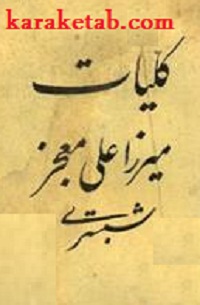 karaketab.com
کلیات
میرزا علی معجز
شبستری